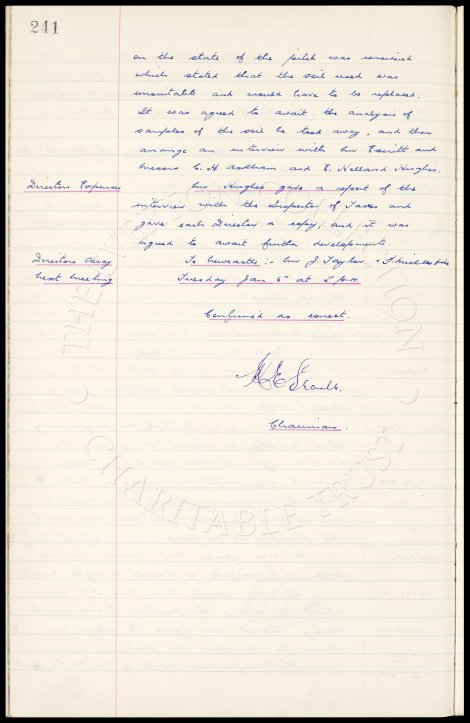 241
on the state of the pitch was received
which stated that the soil used was
unsuitable and would have to be replaced.
It was agreed to await the analysis of
samples of the soil he took away, and then
arrange an interview with Mr Escritt and
Messrs C. H. Askham and E. Holland Hughes.
Directors Expenses Mr Hughes gave a report of the
interview with the Inspector of Taxes and
gave each Director a copy, and it was
agreed to await further developments.
Directors Away To Newcastle:- Mr J Taylor +
Next Meeting Tuesday Jan 6th at 5 p.m.
Confirmed as correct.
Chairman.
THE EVERTON COLLECTION
CHARITABLE TRUST